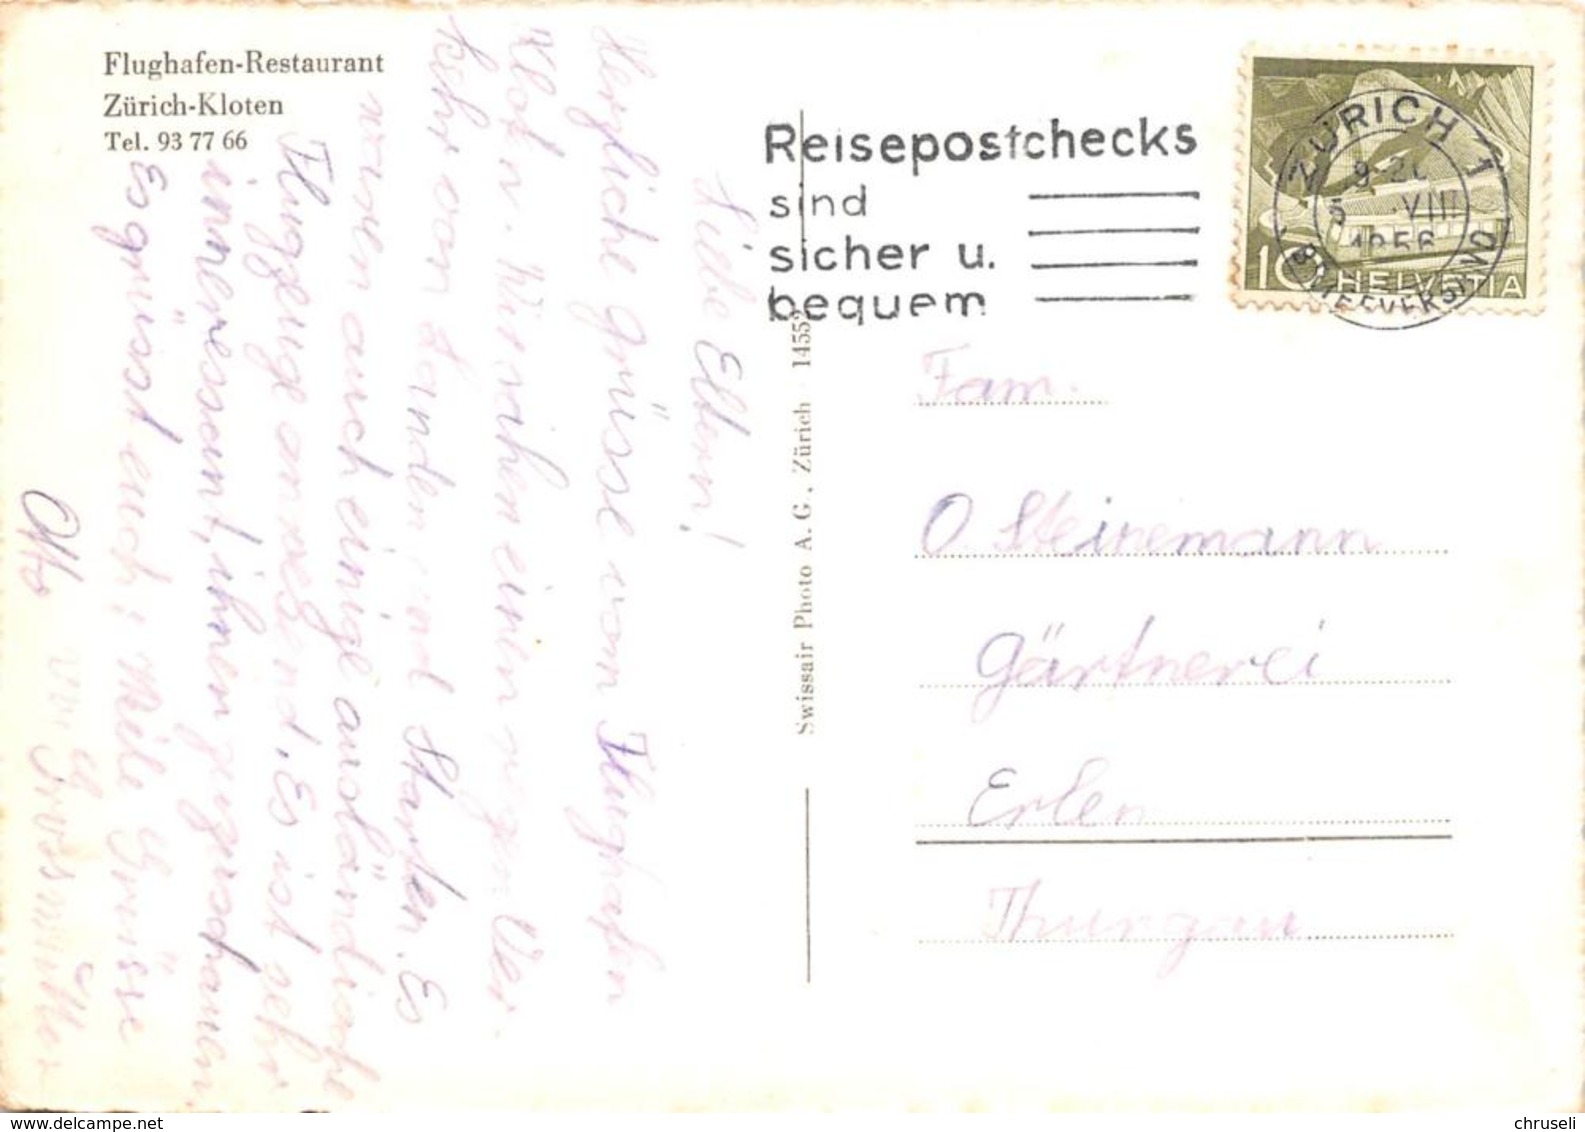 Flughafen-Restaurant
Zürich-Kloten
Tel. 93 77 66
Reisepostchecks
sind
sicher u.
bequem
ZÜRICH 1
5. VIII
1956
BRIEFVERSAND
10 HELVETIA
Liebe Eltern!
Herzliche Grüsse vom Flughafen
Kloten. Wir sahen einen regen Ver
kehr von Landen und Starten. Es
waren auch einige ausländische
Flugzeuge anwesend. Es ist sehr
interessant, ihnen zuzuschauen,
Es grüsst euch: Viele Grüsse
Otto von Grossmutter
Swissair Photo A. G., Zürich 1455
Fam.
O. Steinemann
Gärtnerei
Erlen
Thurgau
www.delcampe.net
chruseli